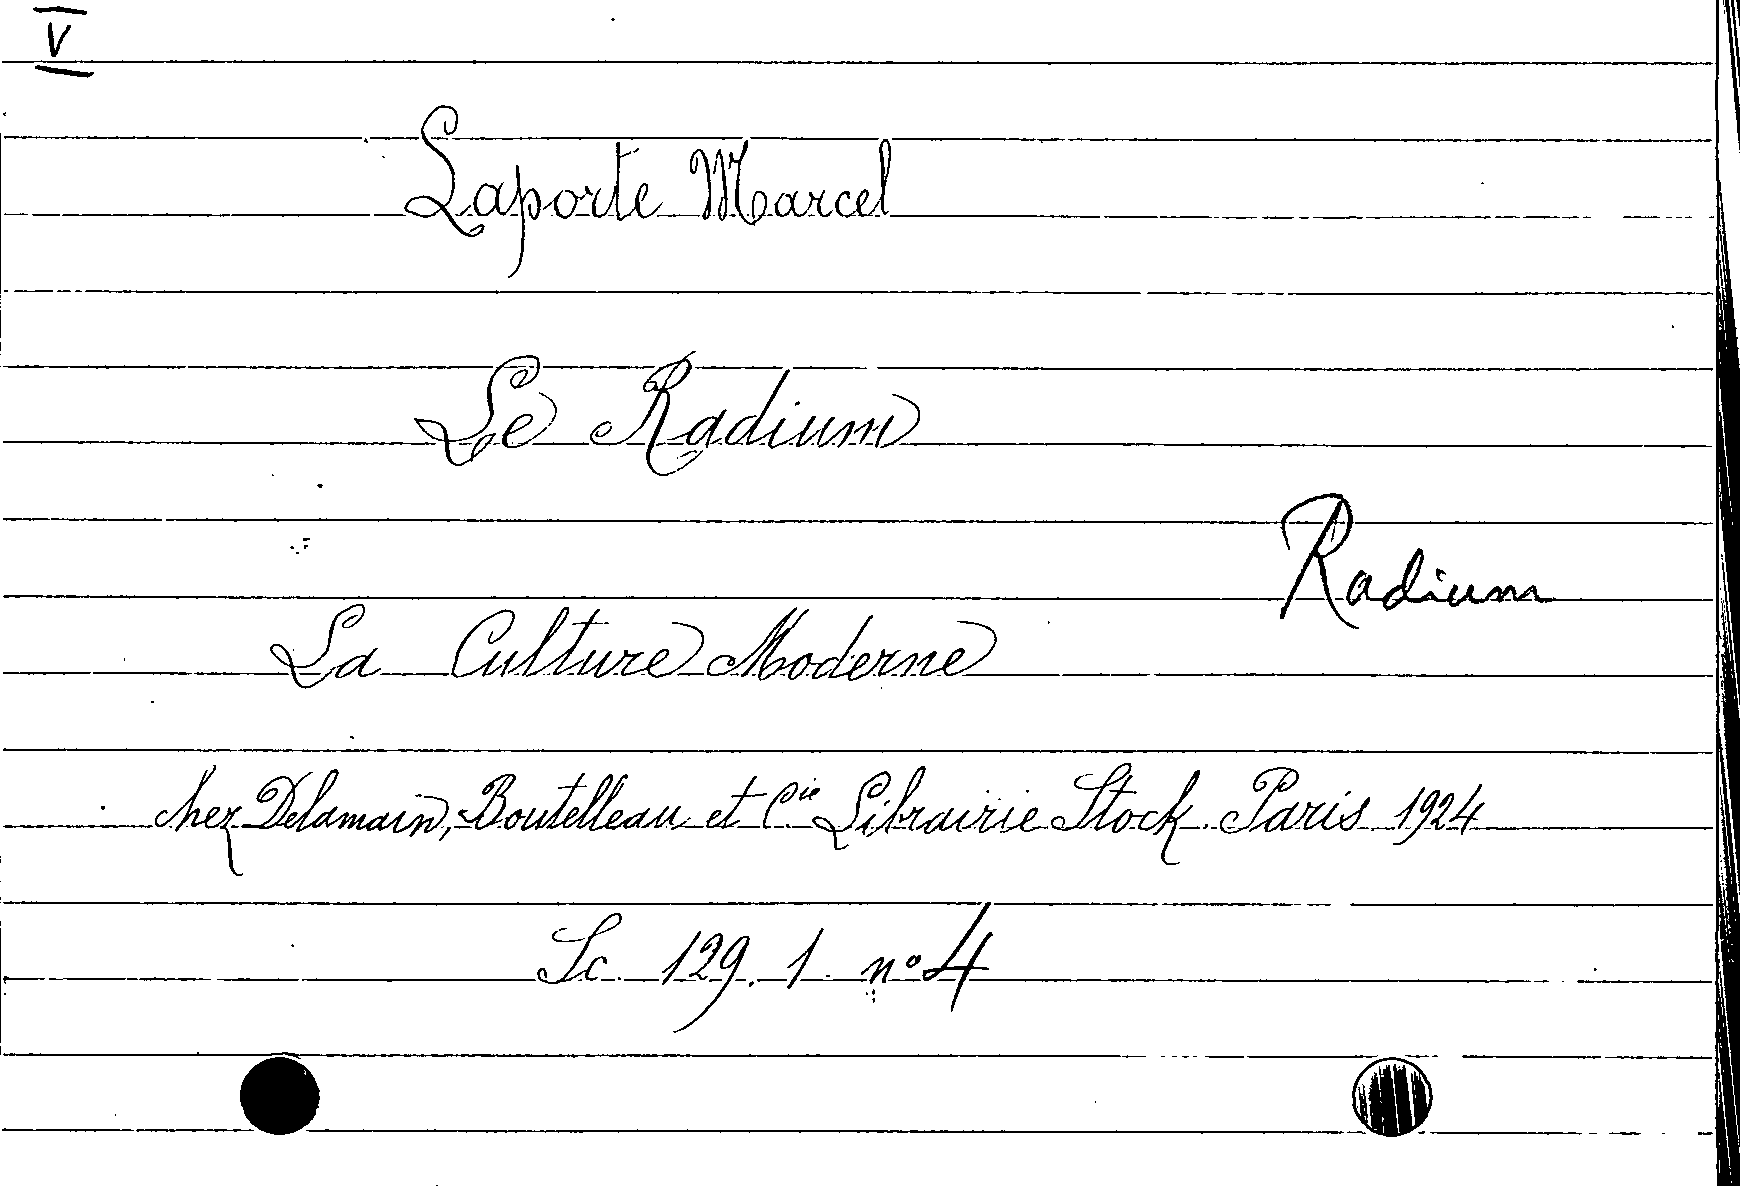 V
Laporte Marcel
Le Radium
Radium
La Culture Moderne
chez Delamain, Boutelleau et Cie Librairie Stock. Paris 1924
Sc. 129. 1. n° 4